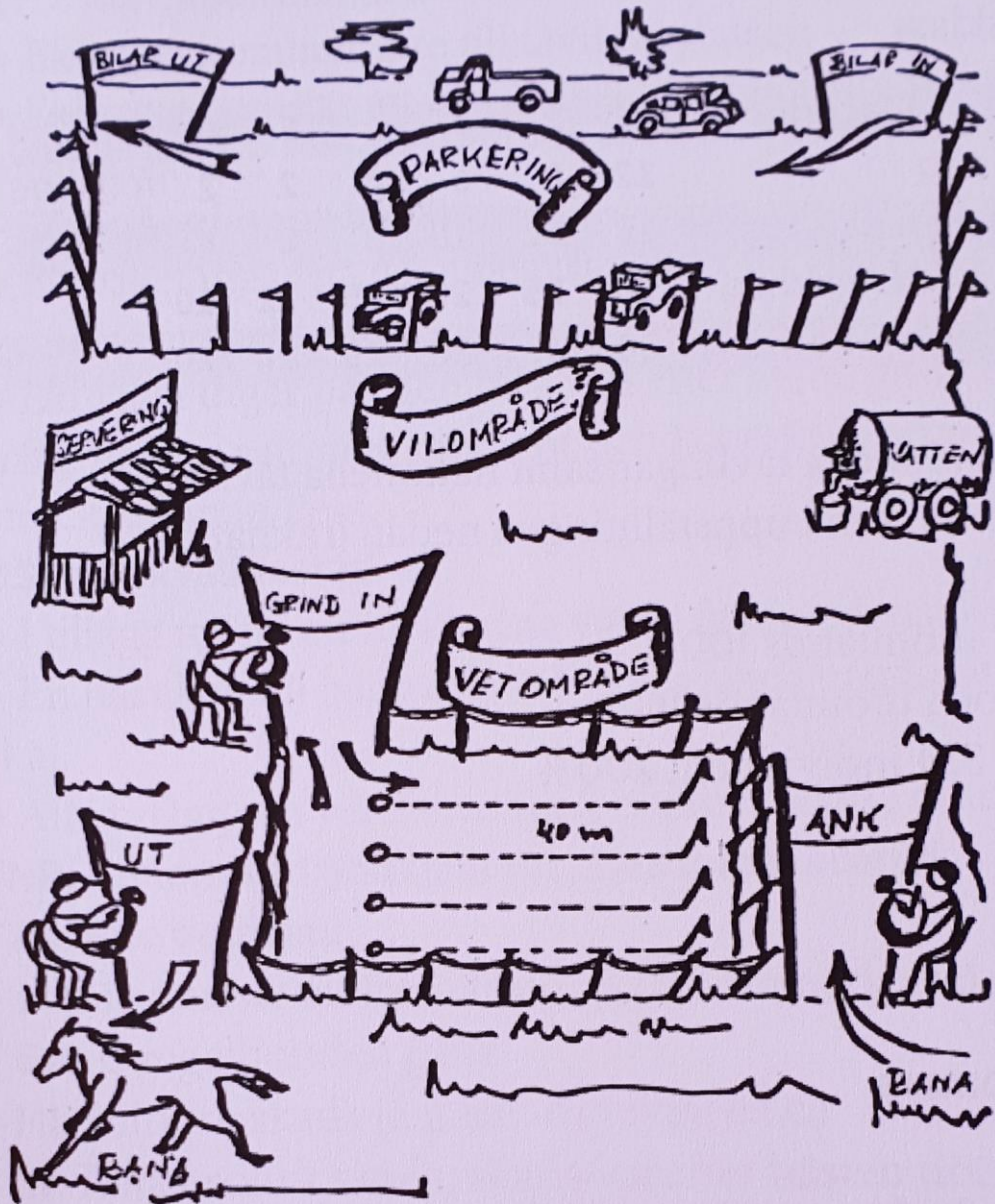 BILAR UT
BILAR IN
PARKERING
VILOMRÅDE
SERVERING
VATTEN
GRIND IN
VETOMRÅDE
40 m
ANK
UT
BANA
BANA